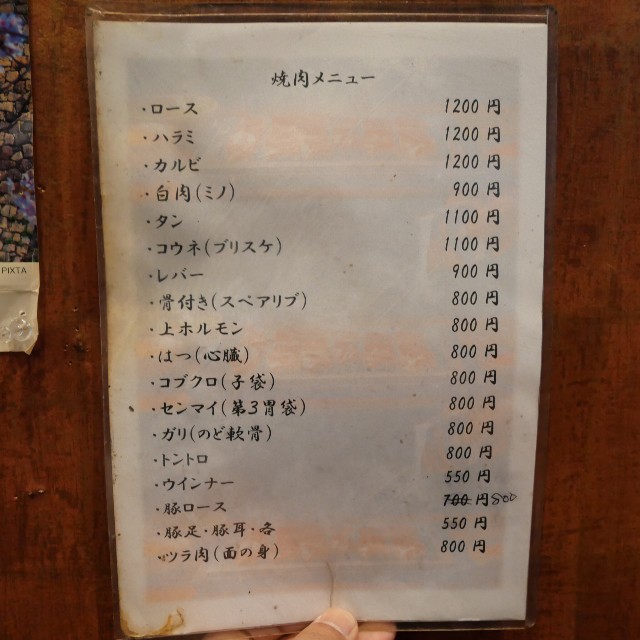 焼肉メニュー
・ロース 1200 円
・ハラミ 1200 円
・カルビ 1200 円
・白肉(ミノ) 900 円
・タン 1100 円
・コウネ(ブリスケ) 1100 円
・レバー 900 円
・骨付き(スペアリブ) 800 円
・上ホルモン 800 円
・はつ(心臓) 800 円
・コブクロ(子袋) 800 円
・センマイ(第3胃袋) 800 円
・ガリ(のど軟骨) 800 円
・トントロ 800 円
・ウインナー 550 円
・豚ロース 700 円 800
・豚足・豚耳・各 550 円
・ツラ肉(面の身) 800 円
PIXTA